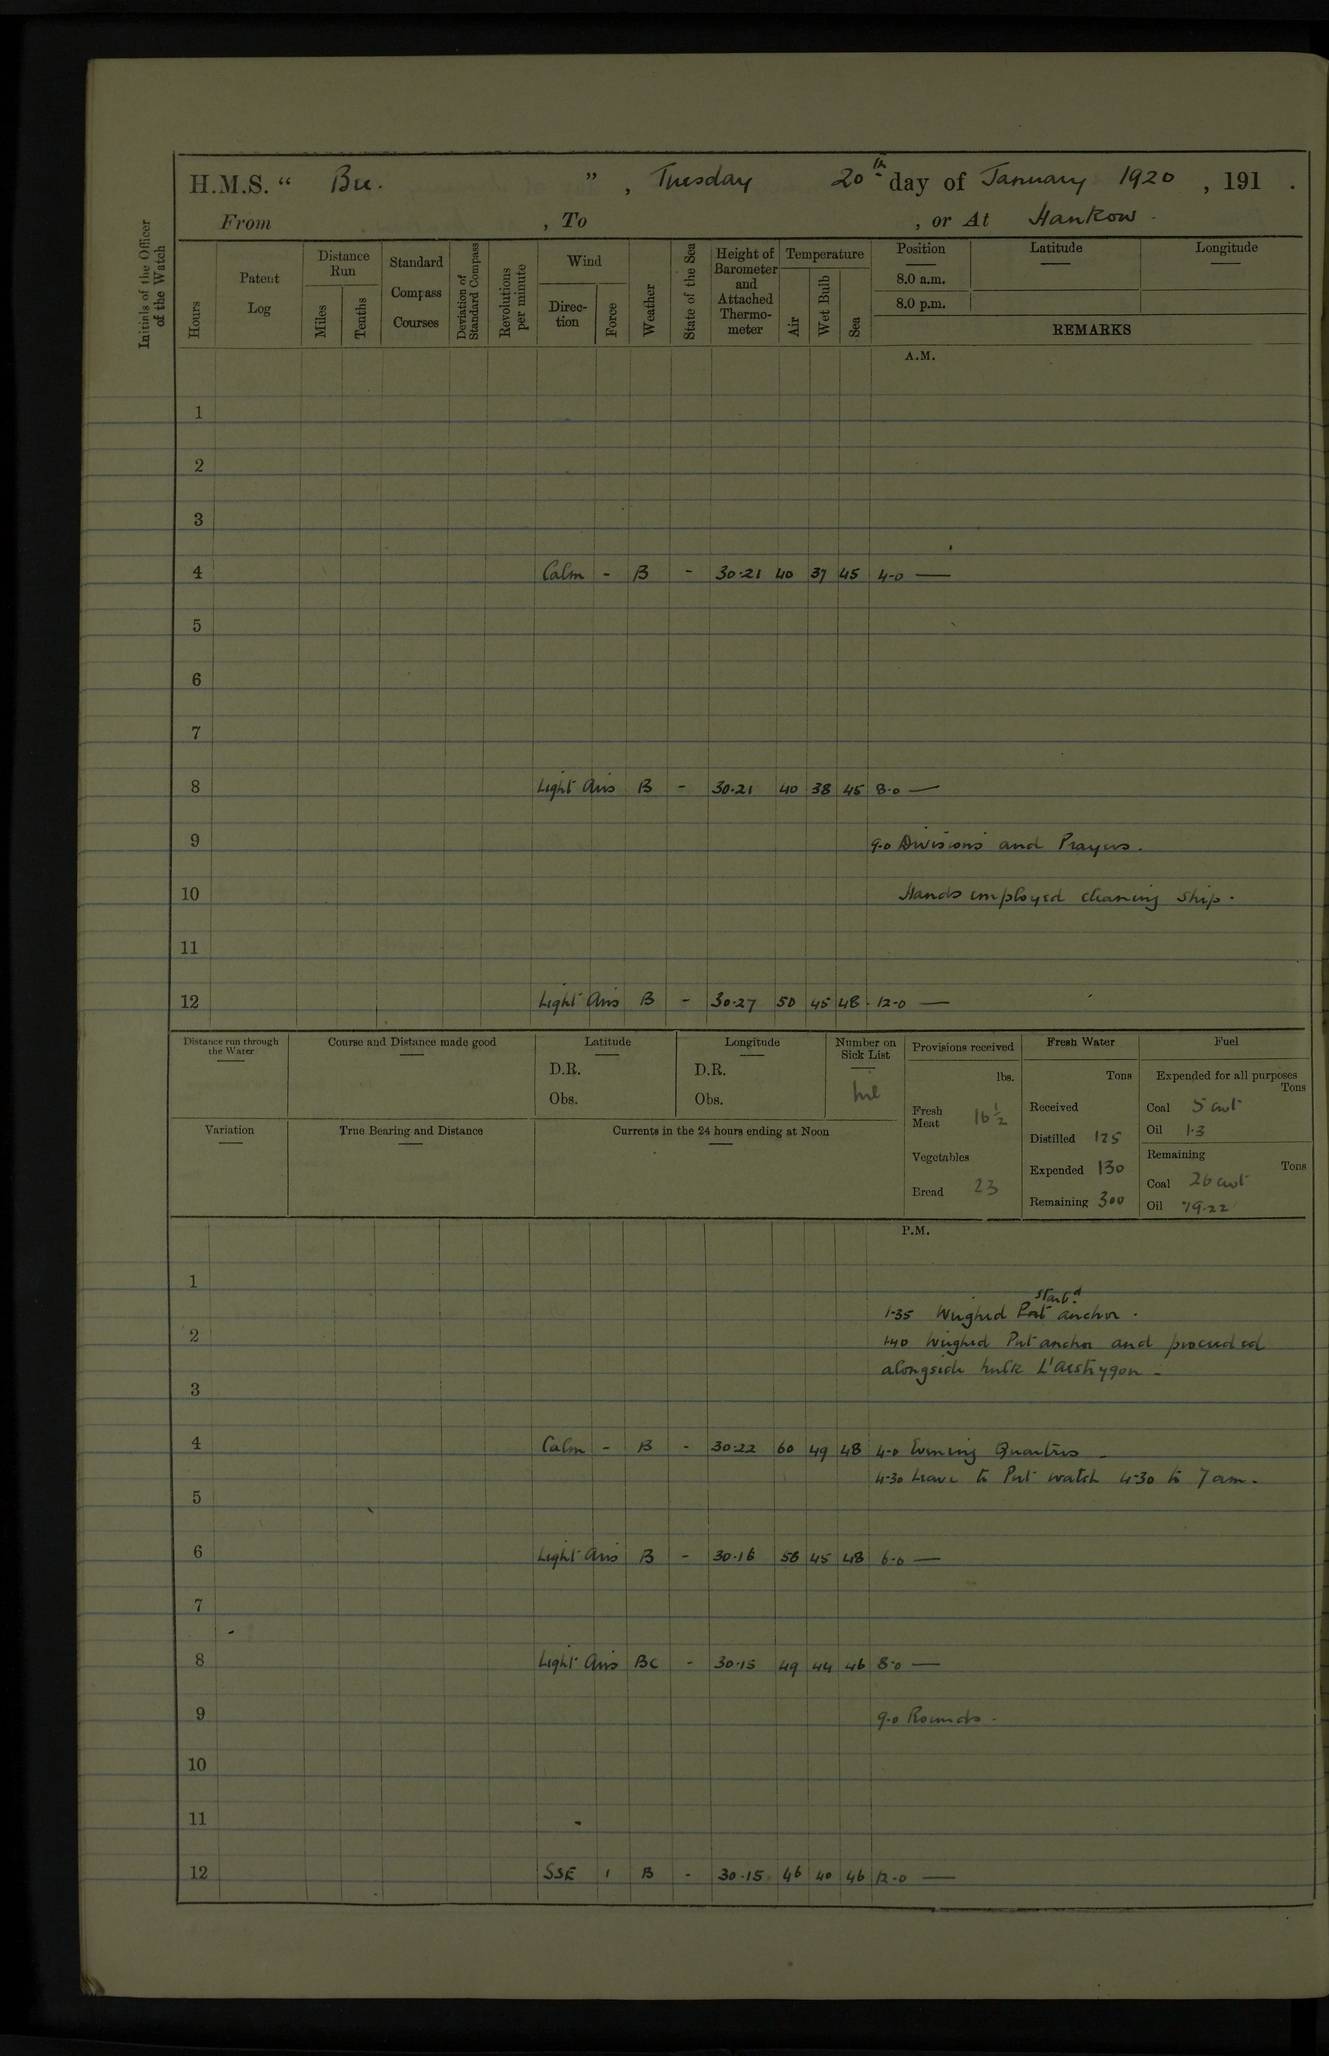 H.M.S. " Bee. ", Tuesday 20th day of January 1920, 191 .
From , To , or At Hankow.
Initials of the Officer of the Watch
Hours
Patent Log
Distance Run
Miles
Tenths
Standard Compass Courses
Deviation of Standard Compass
Revolutions per minute
Wind
Direction
Force
Weather
State of the Sea
Height of Barometer and Attached Thermometer
Temperature
Air
Wet Bulb
Sea
Position Latitude Longitude
8.0 a.m.
8.0 p.m.
REMARKS
A.M.
1
2
3
4 Calm - B - 30.21 40 37 45 4-0 —
5
6
7
8 Light Airs B - 30.21 40 38 45 8.0 —
9 9.0 Divisions and Prayers.
10 Hands employed cleaning ship.
11
12 Light Airs B - 30.27 50 45 48 12-0 —
Distance run through the Water
Course and Distance made good
Latitude
D.R.
Obs.
Longitude
D.R.
Obs.
Number on Sick List
nil
Provisions received
lbs.
Fresh Meat 16 1/2
Vegetables
Bread 23
Fresh Water
Tons
Received
Distilled 125
Expended 130
Remaining 300
Fuel
Expended for all purposes
Tons
Coal 5 cwt
Oil 1.3
Remaining
Tons
Coal 26 cwt
Oil 79.22
Variation
True Bearing and Distance
Currents in the 24 hours ending at Noon
P.M.
1
starbd
1-35 Weighed Port anchor.
2 1-40 Weighed Port anchor and proceeded
alongside hulk L'aestrygon -
3
4 Calm - B - 30.22 60 49 48 4-0 Evening Quarters -
4-30 Leave to Port watch 4-30 to 7 am.
5
6 Light Airs B - 30.16 58 45 48 6-0 —
7
8 Light Airs BC - 30.15 49 44 46 8-0 —
9 9-0 Rounds -
10
11
12 SSE 1 B - 30.15 46 40 46 12-0 —